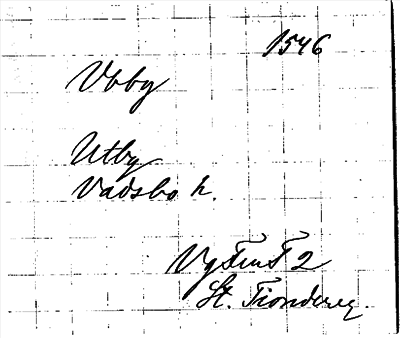 1546
Vbby
Utby
Vadsbo h.
Vg Tiu T 2
St. Tiondereg.